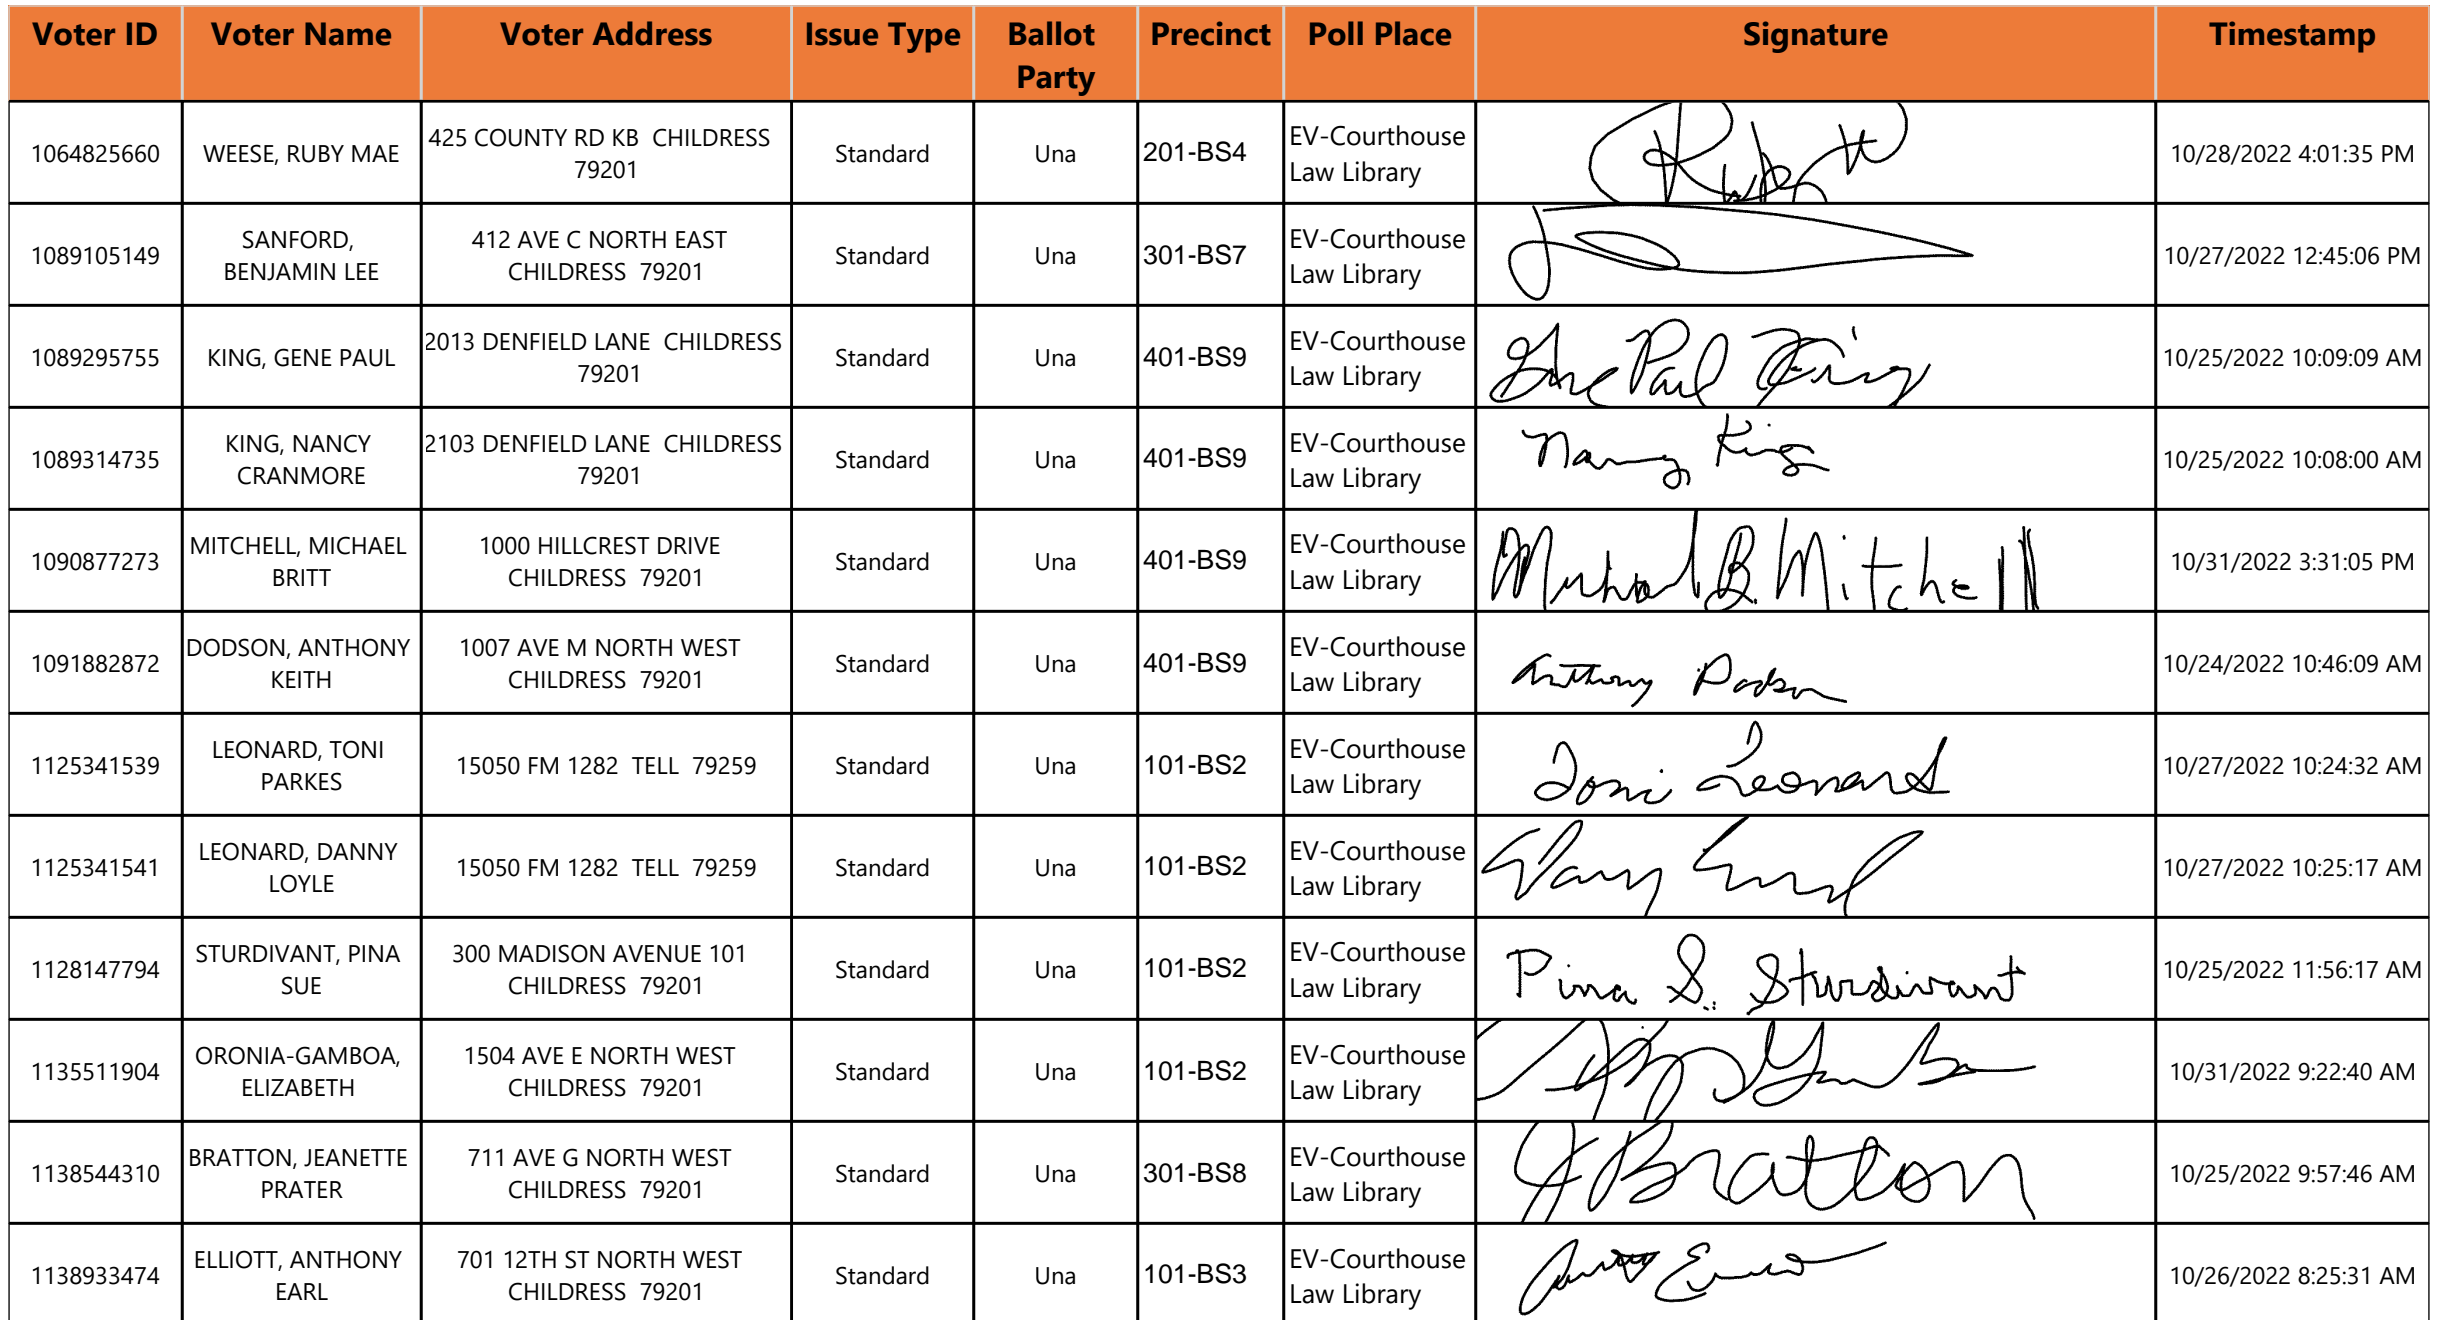 Voter ID Voter Name Voter Address Issue Type Ballot Party Precinct Poll Place Signature Timestamp
1064825660 WEESE, RUBY MAE 425 COUNTY RD KB CHILDRESS 79201 Standard Una 201-BS4 EV-Courthouse Law Library 10/28/2022 4:01:35 PM
1089105149 SANFORD, BENJAMIN LEE 412 AVE C NORTH EAST CHILDRESS 79201 Standard Una 301-BS7 EV-Courthouse Law Library 10/27/2022 12:45:06 PM
1089295755 KING, GENE PAUL 2013 DENFIELD LANE CHILDRESS 79201 Standard Una 401-BS9 EV-Courthouse Law Library Gene Paul King 10/25/2022 10:09:09 AM
1089314735 KING, NANCY CRANMORE 2103 DENFIELD LANE CHILDRESS 79201 Standard Una 401-BS9 EV-Courthouse Law Library Nancy King 10/25/2022 10:08:00 AM
1090877273 MITCHELL, MICHAEL BRITT 1000 HILLCREST DRIVE CHILDRESS 79201 Standard Una 401-BS9 EV-Courthouse Law Library Michael B. Mitchell 10/31/2022 3:31:05 PM
1091882872 DODSON, ANTHONY KEITH 1007 AVE M NORTH WEST CHILDRESS 79201 Standard Una 401-BS9 EV-Courthouse Law Library Anthony Dodson 10/24/2022 10:46:09 AM
1125341539 LEONARD, TONI PARKES 15050 FM 1282 TELL 79259 Standard Una 101-BS2 EV-Courthouse Law Library Toni Leonard 10/27/2022 10:24:32 AM
1125341541 LEONARD, DANNY LOYLE 15050 FM 1282 TELL 79259 Standard Una 101-BS2 EV-Courthouse Law Library 10/27/2022 10:25:17 AM
1128147794 STURDIVANT, PINA SUE 300 MADISON AVENUE 101 CHILDRESS 79201 Standard Una 101-BS2 EV-Courthouse Law Library Pina S. Sturdivant 10/25/2022 11:56:17 AM
1135511904 ORONIA-GAMBOA, ELIZABETH 1504 AVE E NORTH WEST CHILDRESS 79201 Standard Una 101-BS2 EV-Courthouse Law Library 10/31/2022 9:22:40 AM
1138544310 BRATTON, JEANETTE PRATER 711 AVE G NORTH WEST CHILDRESS 79201 Standard Una 301-BS8 EV-Courthouse Law Library J Bratton 10/25/2022 9:57:46 AM
1138933474 ELLIOTT, ANTHONY EARL 701 12TH ST NORTH WEST CHILDRESS 79201 Standard Una 101-BS3 EV-Courthouse Law Library 10/26/2022 8:25:31 AM